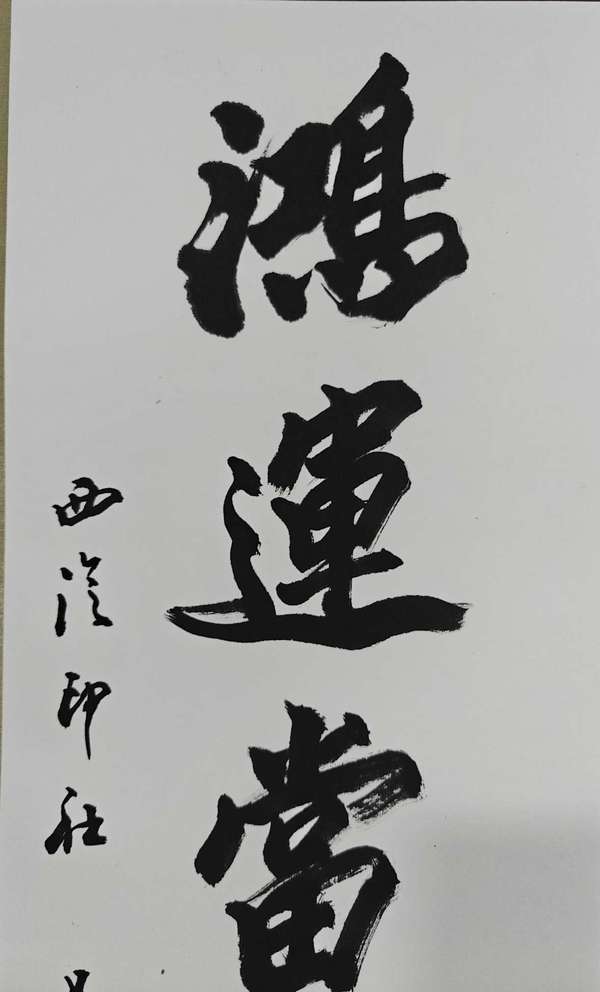 鴻運當
西泠印社